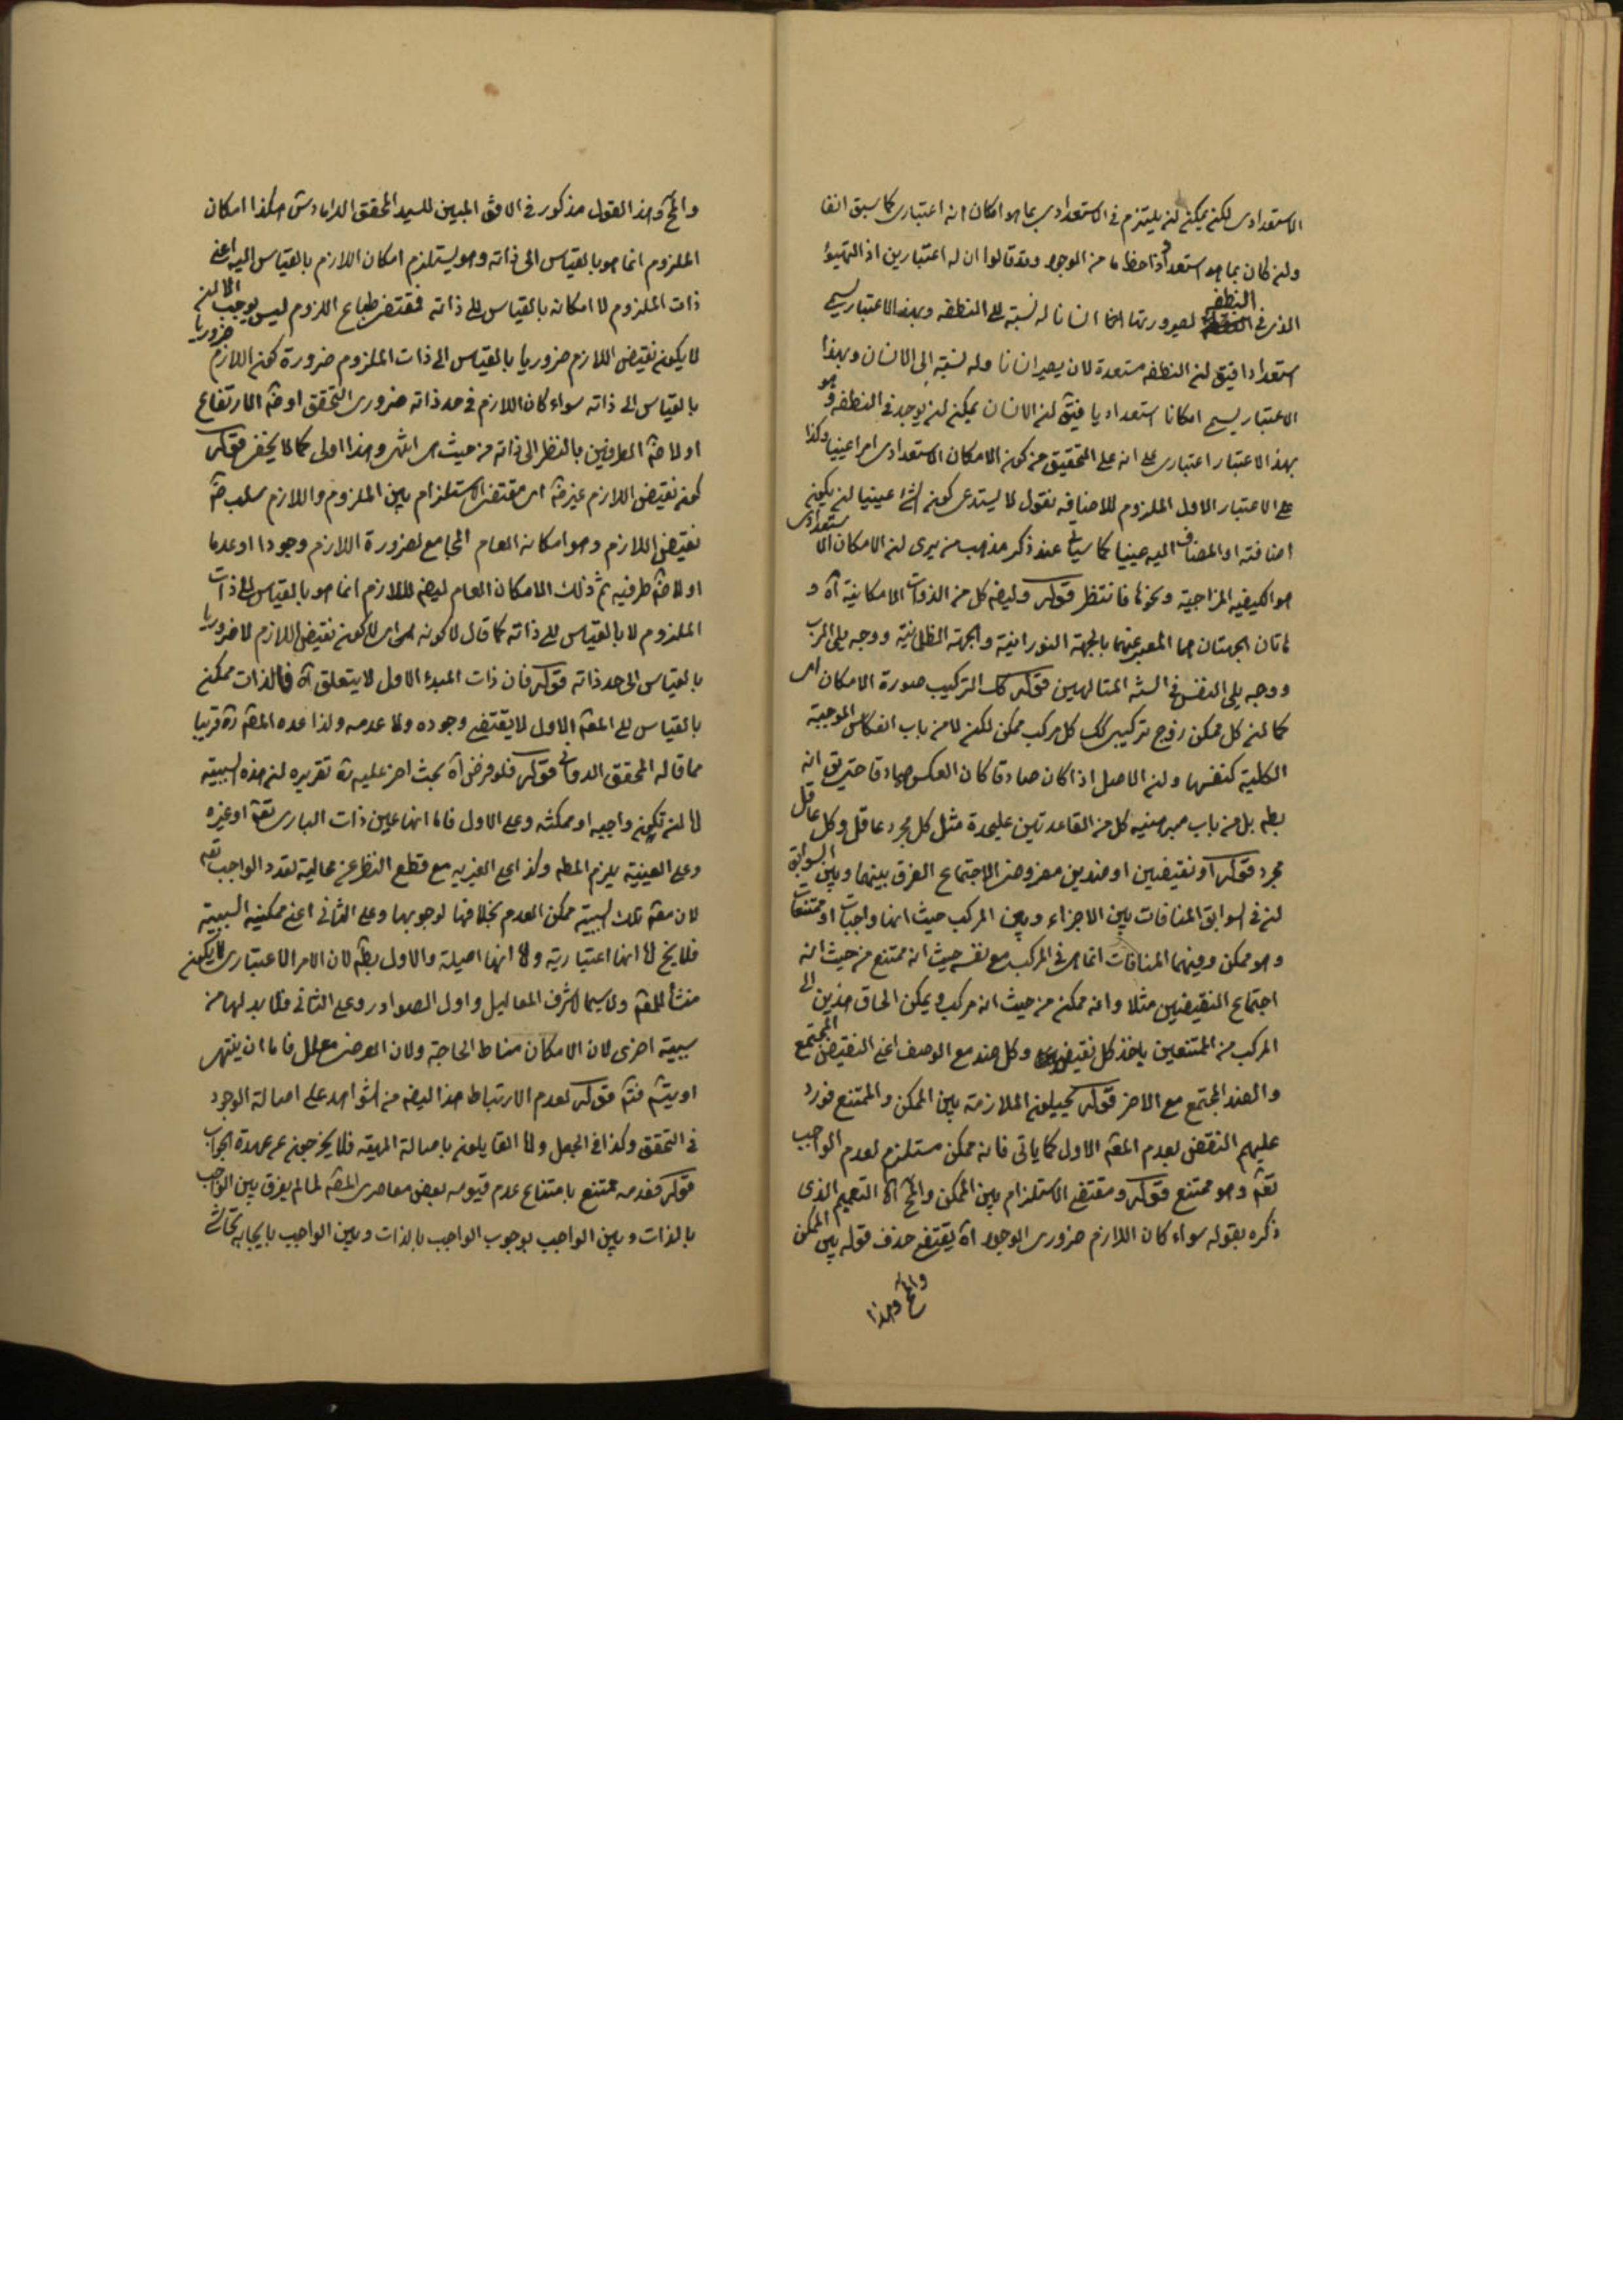 الاستعدادى لكن يمكن ان يلتزم فى الاستعدادى بما هو امكان انه اعتبارى كما سبق انفا
وان كان بما هو استعداد ذا حظ ما من الوجود وقد قالوا ان له اعتبارين اذ التهيؤ
الذى فى النطفه لصيرورتها انسانا له نسبة الى النطفه وبهذا الاعتبار يسمى
استعدادا فيق ان النطفه مستعدة لان يصير انسانا وله نسبة الى الانسان وبهذا
الاعتبار يسمى امكانا استعداديا فيق ان الانسان يمكن ان يوجد فى النطفه وهو
بهذا الاعتبار اعتبارى على انه على التحقيق من كون الامكان الاستعدادى امرا عينيا وكذا
على الاعتبار الاول الملزوم للاضافه نقول لا يستدعى كون الشئ عينيا ان يكون
اضافته او المضاف اليه عينيا كما سياتى عند ذكر مذهب من يرى ان الامكان الاستعدادى
هو الكيفيه المزاجية ونحوها فانتظر قوله وايضا كل من الذوات الامكانية اه و
هاتان الجهتان هما المعبر عنهما بالجهة النورانية والجهة الظلمانية ووجه يلى الرب
ووجه يلى النفس فى السنة المتالهين قوله كك التركيب صورة الامكان اى
كما ان كل ممكن زوج تركيبى كك كل مركب ممكن لكن لا من باب انعكاس الموجبة
الكلية كنفسها وان الاصل اذا كان صادقا كان العكس صادقا حتى يق انه
بط بل من باب مبرهنيه كل من القاعدتين عليحدة مثل كل مجرد عاقل وكل عاقل
مجرد قوله او نقيضين او ضدين مفروضى الاجتماع الفرق بينهما وبين السوابق
ان فى السوابق المنافات بين الاجزاء وبين المركب حيث انها واجبات او ممتنعات
وهو ممكن وفيهما المنافات انما هى فى المركب مع نفسه حيث انه ممتنع من حيث انه
اجتماع النقيضين مثلا وانه ممكن من حيث انه مركب ويمكن الحاق هذين الى
المركب من الممتنعين باخذ كل نقيض وكل ضد مع الوصف اعنى النقيض المجتمع
والضد المجتمع مع الاخر قوله يحيلون الملازمة بين الممكن والممتنع فورد
عليهم النقض بعدم المعة الاول كما ياتى فانه ممكن مستلزم لعدم الواجب
تعه وهو ممتنع قوله ومقتضى الاستلزام بين الممكن والمح اه التعميم الذى
ذكره بقوله سواء كان اللازم ضرورى الوجود اه يقتضى حذف قوله بين الممكن
والمح وهذا
والمح وهذا القول مذكور فى الافق المبين للسيد المحقق الداماد هكذا امكان
الملزوم انما هو بالقياس الى ذاته وهو يستلزم امكان اللازم بالقياس اليه اعنى
ذات الملزوم لا امكانه بالقياس الى ذاته فمقتضى طباع اللزوم ليس يوجب الا ان
لا يكون نقيض اللازم ضروريا بالقياس الى ذات الملزوم ضرورة كون اللازم ضروريا
بالقياس الى ذاته سواء كان اللازم فى حد ذاته ضرورى التحقق او ضه الارتفاع
او لا ضه الطرفين بالنظر الى ذاته من حيث هى انتهى وهذا اولى كما لا يخفى قوله
كون نقيض اللازم غير ضه اى مقتضى الاستلزام بين الملزوم واللازم سلب ضه
نقيض اللازم وهو امكانه العام المجامع لضرورة اللازم وجودا او عدما
او لا ضه طرفيه ثم ذلك الامكان العام ايضا لللازم انما هو بالقياس الى ذات
الملزوم لا بالقياس الى ذاته كما قال لا كونه اى لا كون نقيض اللازم لا ضروريا
بالقياس الى حد ذاته قوله فان ذات المبدء الاول لا يتعلق اه فالذات ممكن
بالقياس الى المعة الاول لا يقتضى وجوده ولا عدمه ولذا عده المصه ره قريبا
مما قاله المحقق الدوانى قوله فلو فرض اه بحث اخر عليه ره تقريره ان هذه السببية
اما ان تكون واجبه او ممكنه وعلى الاول فاما انها عين ذات البارى تعه او غيره
وعلى العينية يلزم المط وكذا على الغيرية مع قطع النظر عن محالية تعدد الواجب تعه
لان معة تلك السببية ممكن العدم بخلافها لوجوبها وعلى الثانى اعنى ممكنيه السببية
فلا يخ اما انها اعتبارية واما انها اصيلة والاول بط لان الامر الاعتبارى لا يكون
منشأ للمعة ولا سيما لاشرف المعاليل واول الصوادر وعلى الثانى فلا بد لها من
سببية اخرى لان الامكان مناط الحاجة ولان العرضى معلل فاما ان ينتهى
او يتم فتم قوله لعدم الارتباط هذا ايضا من الشواهد على اصالة الوجود
فى التحقق وكذا فى الجعل واما القايلون باصالة المهيه فلا يخرجون عن عهدة الجواب
قوله فعدمه ممتنع بامتناع عدم قيومه بعض معاصرى المصه لما لم يفرق بين الواجب
بالذات وبين الواجب بوجوب الواجب بالذات وبين الواجب بايجابه تحاشى